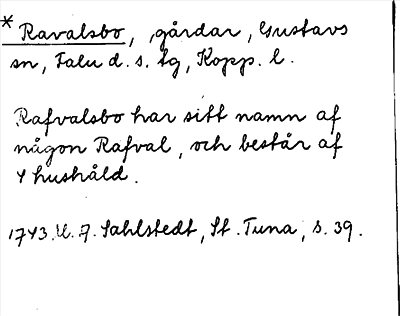 * Ravalsbo, gårdar, Gustavs
sn, Falu d. s. tg, Kopp. l.
Rafvalsbo har sitt namn af
någon Rafval, och består af
4 hushåld.
1743. U. A. Sahlstedt, St. Tuna, s. 39.